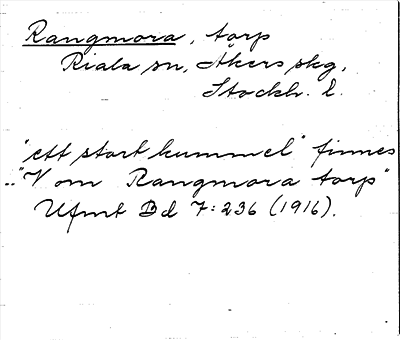 Rangmora, torp
Riala sn, Åkers skg,
Stockh. l.
"ett stort kummel" finnes
.."V om Rangmora torp"
Ufmt Bd 7:236 (1916).